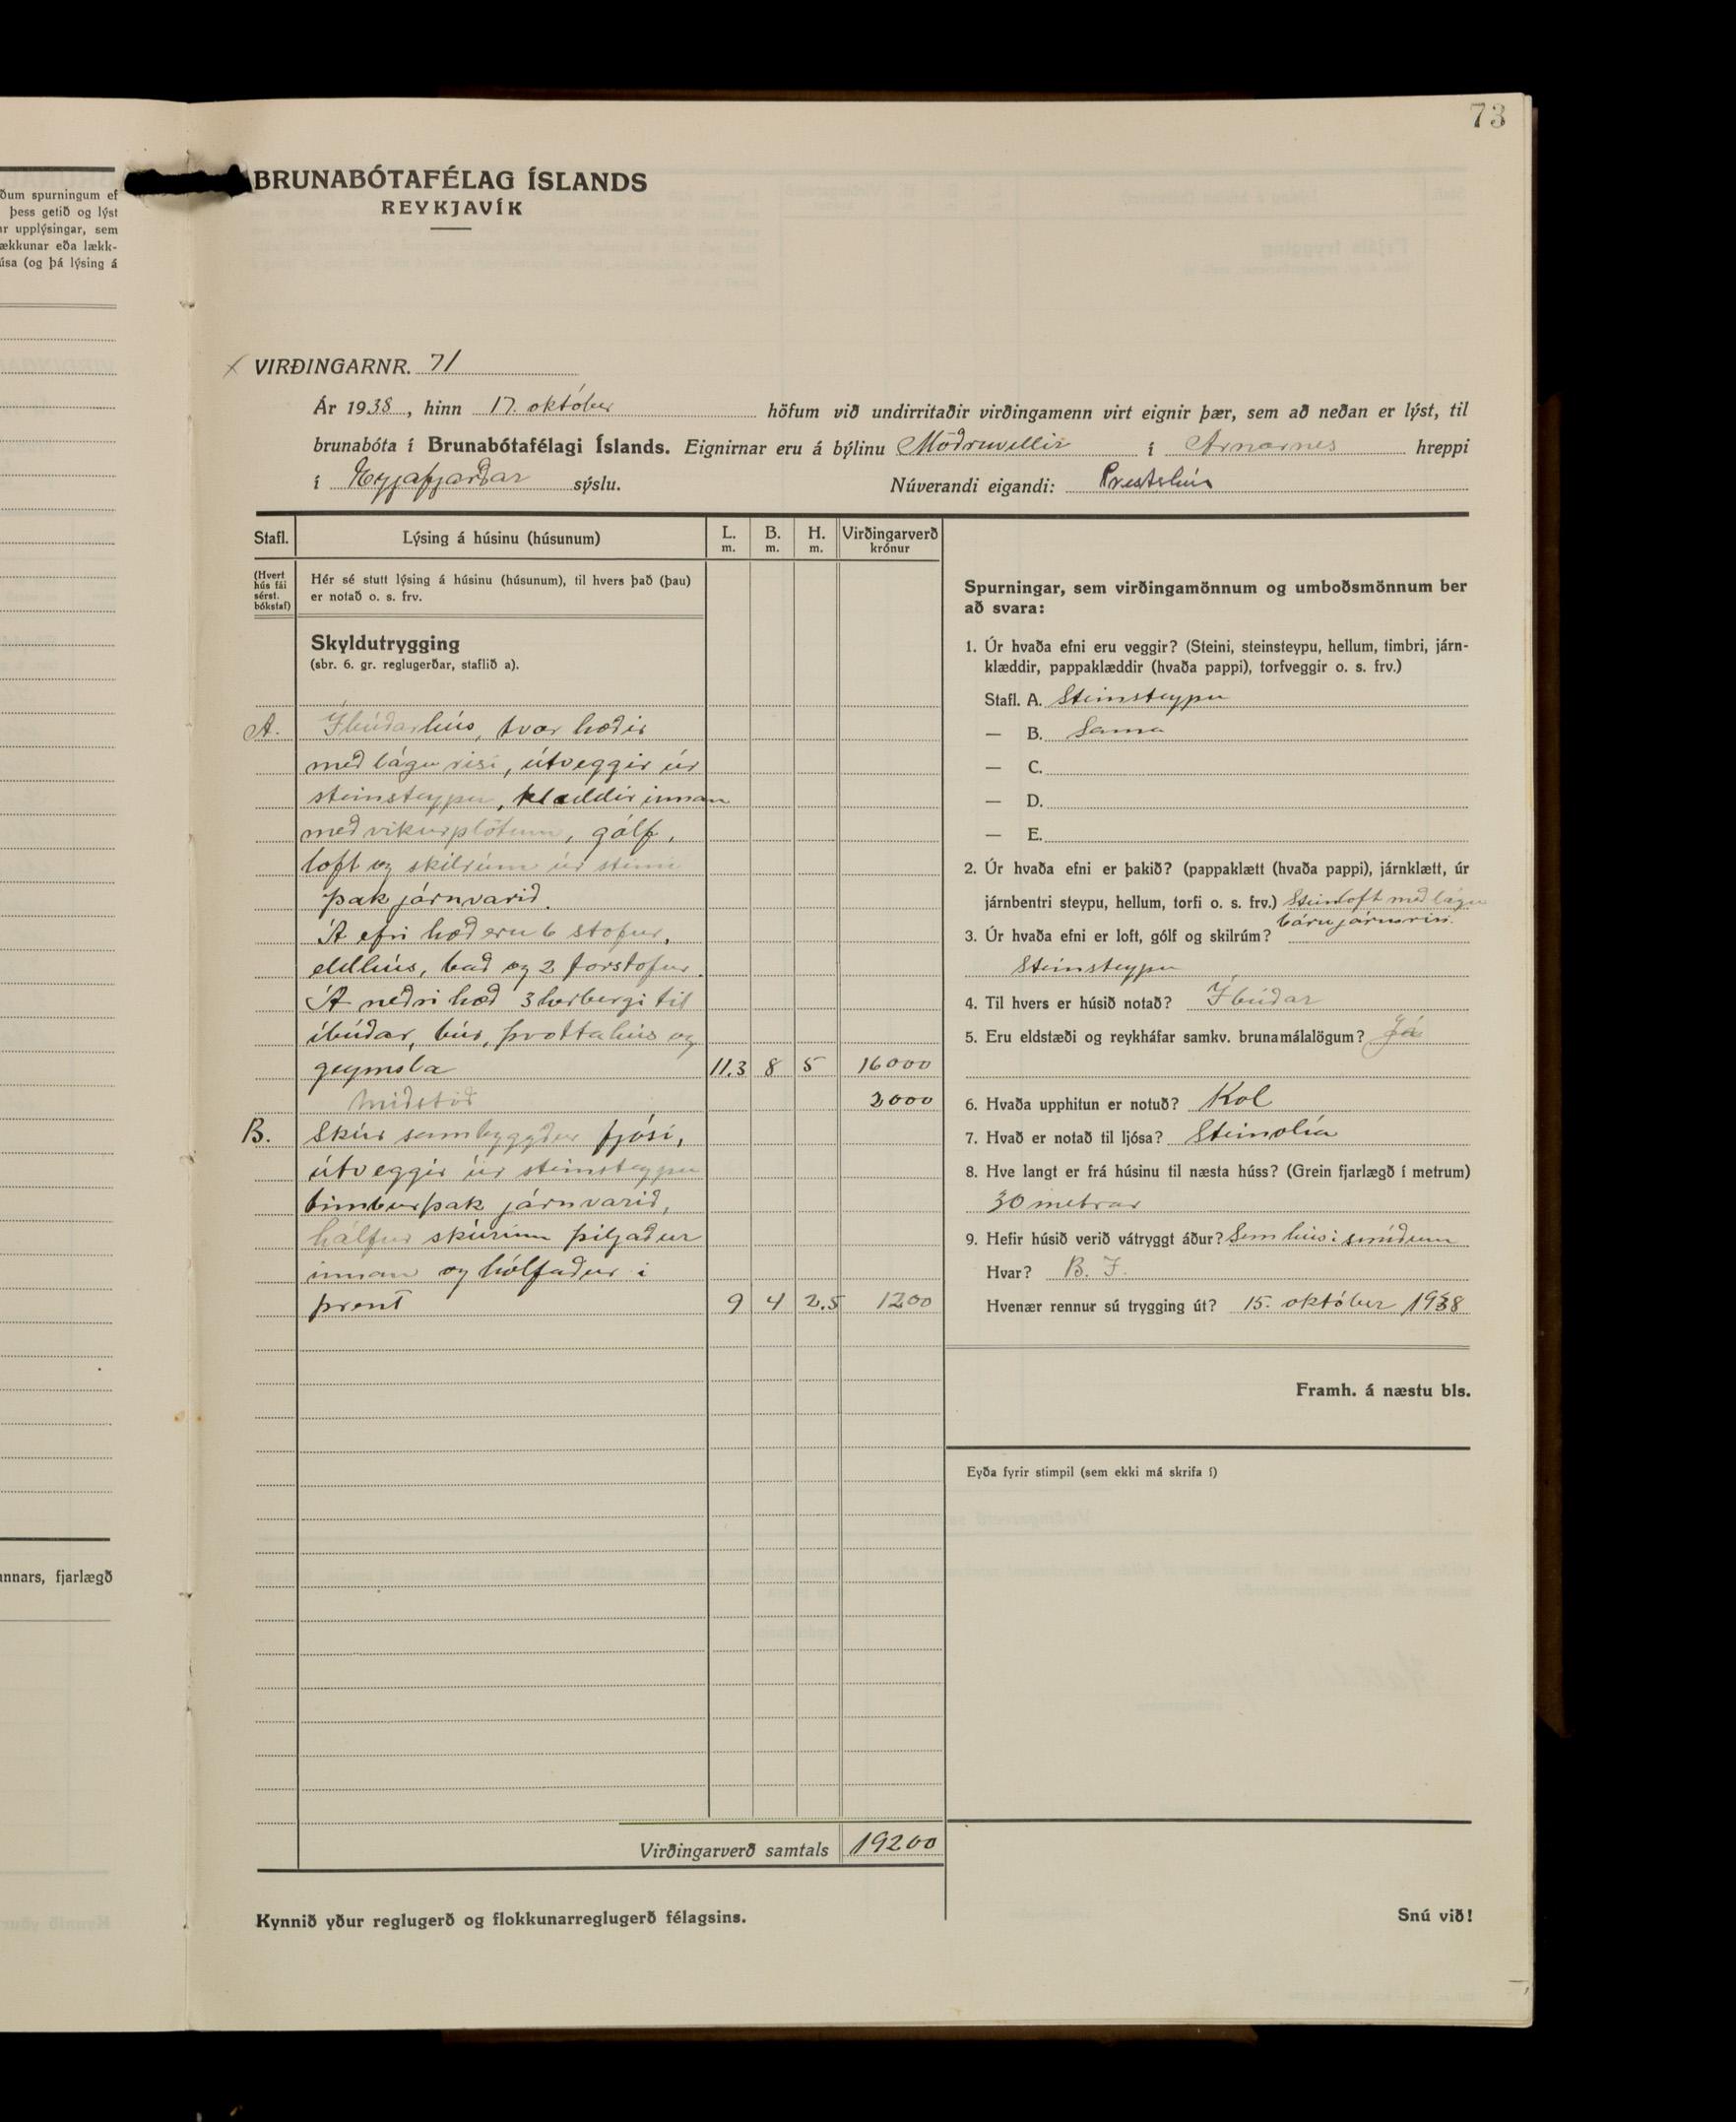 73
ðum spurningum ef
þess getið og lýst
ar upplýsingar, sem
ækkunar eða lækk-
úsa (og þá lýsing á
annars, fjarlægð
BRUNABÓTAFÉLAG ÍSLANDS
REYKJAVÍK
VIRÐINGARNR. 71
Ár 1938, hinn 17. október höfum við undirritaðir virðingamenn virt eignir þær, sem að neðan er lýst, til
brunabóta í Brunabótafélagi Íslands. Eignirnar eru á býlinu Möðruvellir í Arnarnes hreppi
í Eyjafjarðar sýslu. Núverandi eigandi: Prestshús
Stafl. Lýsing á húsinu (húsunum) L. m. B. m. H. m. Virðingarverð krónur
(Hvert hús fái sérst. bókstaf)
Hér sé stutt lýsing á húsinu (húsunum), til hvers það (þau)
er notað o. s. frv.
Skyldutrygging
(sbr. 6. gr. reglugerðar, staflið a).
A. Íbúðarhús, tvær hæðir
með lágu risi, útveggir úr
steinsteypu, klæddir innan
með vikurplötum, gólf,
loft og skilrúm úr steini
þak járnvarið.
Á efri hæð eru 6 stofur,
eldhús, bað og 2 forstofur.
Á neðri hæð 3 herbergi til
íbúðar, búr, þvottahús og
geymsla 11.3 8 5 16000
Miðstöð 2000
B. Skúr sambyggður fjósi,
útveggir úr steinsteypu
timburþak járnvarið,
hálfur skúrinn þiljaður
innan og hólfaður í
þrent 9 4 2.5 1200
Virðingarverð samtals 19200
Kynnið yður reglugerð og flokkunarreglugerð félagsins.
Spurningar, sem virðingamönnum og umboðsmönnum ber
að svara:
1. Úr hvaða efni eru veggir? (Steini, steinsteypu, hellum, timbri, járn-
klæddir, pappaklæddir (hvaða pappi), torfveggir o. s. frv.)
Stafl. A. Steinsteypu
— B. Sama
— C.
— D.
— E.
2. Úr hvaða efni er þakið? (pappaklætt (hvaða pappi), járnklætt, úr
járnbentri steypu, hellum, torfi o. s. frv.) Steinloft með lágu
bárujárnsrisi.
3. Úr hvaða efni er loft, gólf og skilrúm?
Steinsteypu
4. Til hvers er húsið notað? Íbúðar
5. Eru eldstæði og reykháfar samkv. brunamálalögum? Já
6. Hvaða upphitun er notuð? Kol
7. Hvað er notað til ljósa? Steinolía
8. Hve langt er frá húsinu til næsta húss? (Grein fjarlægð í metrum)
30 metrar
9. Hefir húsið verið vátryggt áður? Sem hús í smíðum
Hvar? B. Í.
Hvenær rennur sú trygging út? 15. október 1938
Framh. á næstu bls.
Eyða fyrir stimpil (sem ekki má skrifa í)
Snú við!